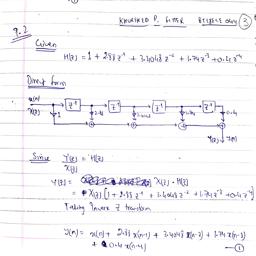 9.2
Given
H(z) = 1 + 2.88 z⁻¹ + 3.4048 z⁻² + 1.74 z⁻³ + 0.4 z⁻⁴
Direct form
x(n)
X(z)
z⁻¹ z⁻¹ z⁻¹ z⁻¹
1 2.88 3.4048 1.74 0.4
Y(z) y(n)
Since Y(z) / X(z) = H(z)
Y(z) = X(z) . H(z)
= X(z) [1 + 2.88 z⁻¹ + 3.4048 z⁻² + 1.74 z⁻³ + 0.4 z⁻⁴]
Taking Inverse Z transform
y(n) = x(n) + 2.88 x(n-1) + 3.4048 x(n-2) + 1.74 x(n-3)
+ 0.4 x(n-4) — ①